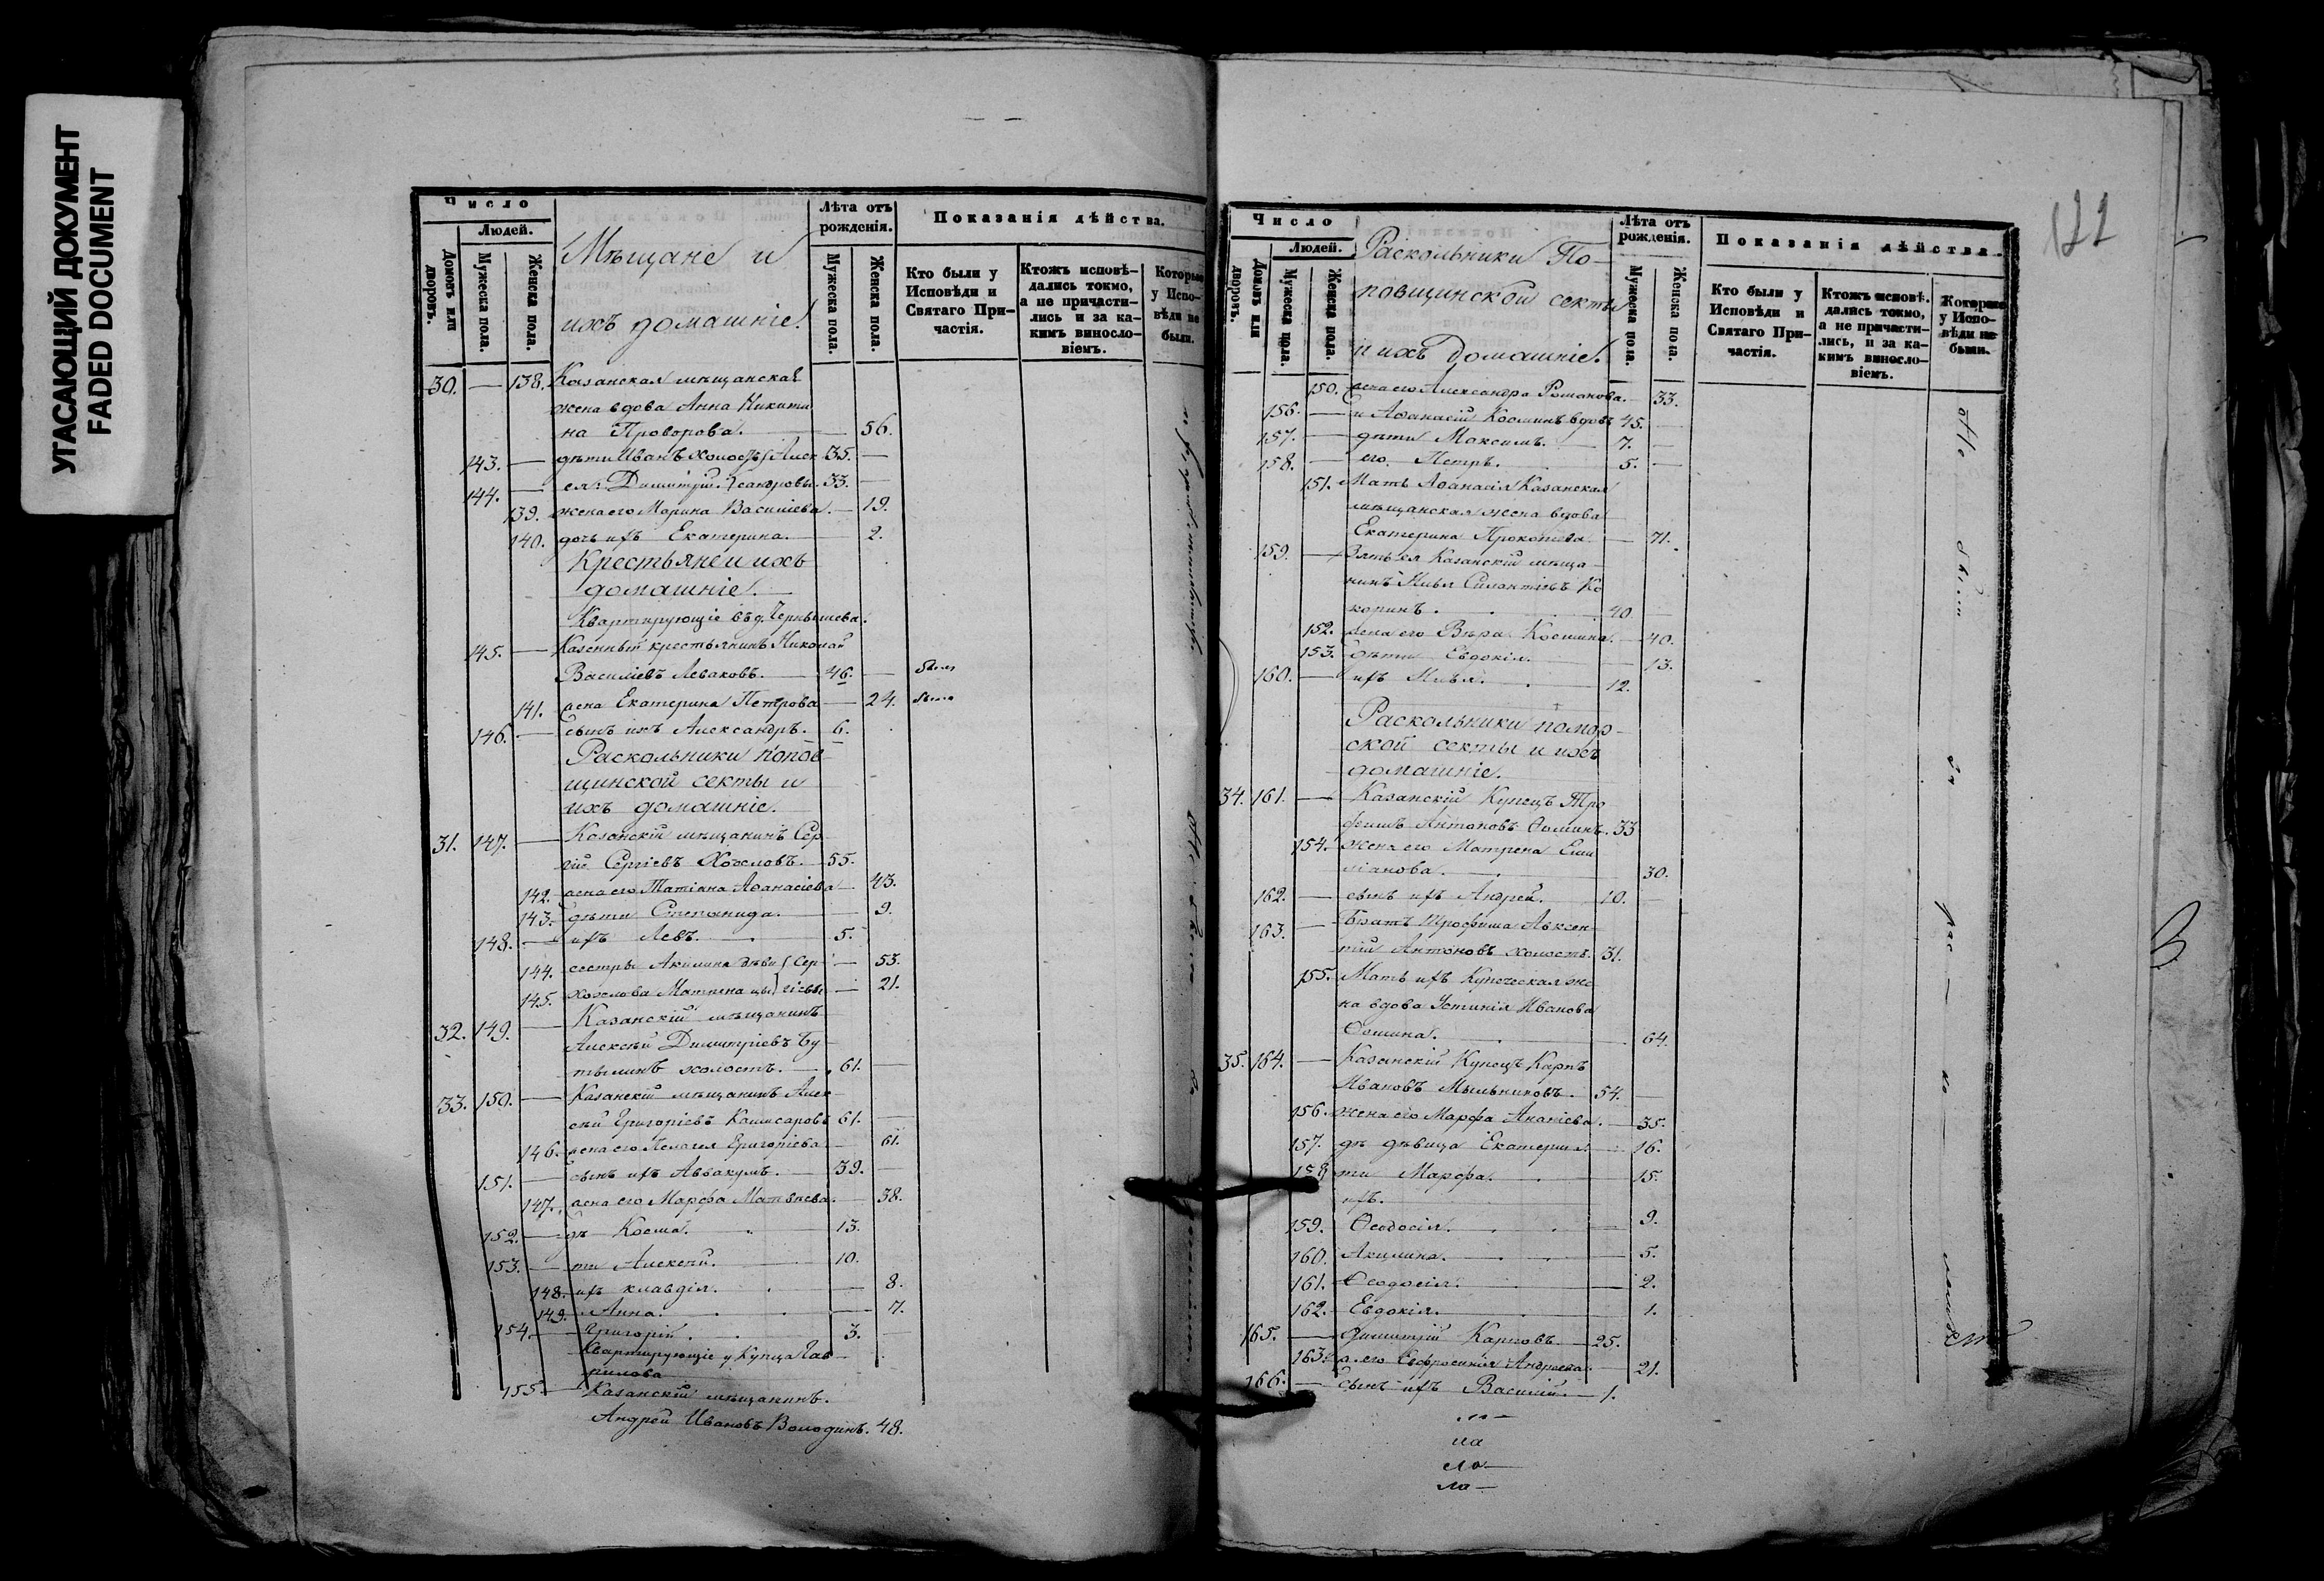 УГАСАЮЩИЙ ДОКУМЕНТ
FADED DOCUMENT
Число
Людей.
Домовъ или дворовъ.
Мужеска пола.
Женска пола.
Мѣщане и
ихъ домашніе.
Лѣта отъ рожденія.
Мужеска пола.
Женска пола.
Показанія дѣйства.
Кто были у Исповѣди и Святаго Причастія.
Ктожъ исповѣдались токмо, а не причастились и за какимъ винословіемъ.
Которые у Исповѣди не были.
30. — 138. Казанская мѣщанская
жена вдова Анна Никити
на Проворова. — 56.
143. — дѣти Иванъ холостъ Алек 35. —
144. — ея: Димитрій. сандровы. 33. —
139. жена его Марина Василіева. — 19.
140. дочь ихъ Екатерина. — 2.
Крестьяне и ихъ
домашніе.
Квартирующіе въ д. Чернышева.
145. — Казенный крестьянинъ Николай
Василіевъ Леваковъ. — 46. — былъ
141. жена Екатерина Петрова — 24. была
146. — сынъ ихъ Александръ. 6.
Раскольники попов
щинской секты и
ихъ домашніе.
31. 147. — Казанскій мѣщанинъ Сер
гій Сергіевъ Хохловъ. — 55.
142. жена его Татіана Аѳанасіева — 43.
143. дѣти Степанида. — 9.
148. — ихъ Левъ. 5.
144. сестры Акилина дѣви Сер — 53.
145. Хохлова Матрена цы гіевы — 21.
32. 149. — Казанскій мѣщанинъ
Алексѣй Димитріевъ Бу
тылинъ холостъ. — 61. —
33. 150. — Казанскій мѣщанинъ Алек
сѣй Григоріевъ Комисаровъ 61. —
146. жена его Пелагея Григоріева — 61.
151. — сынъ ихъ Аввакумъ. — 39. —
147. жена его Марфа Матвѣева. — 38.
152. — дѣ Косма. 13.
153. — ти Алексѣй. 10.
148. ихъ Клавдія. — 8.
149. Анна. — 7.
154. — Григорій. 3. —
Квартирующіе у Купца Гав
рилова
155 — Казанскій мѣщанинъ.
Андрей Ивановъ Володинъ. 48.
122
Число
Людей.
Домовъ или дворовъ.
Мужеска пола.
Женска пола.
Раскольники По
повщинской секты
и ихъ домашніе.
Лѣта отъ рожденія.
Мужеска пола.
Женска пола.
Показанія дѣйства.
Кто были у Исповѣди и Святаго Причастія.
Ктожъ исповѣдались токмо, а не причастились, и за какимъ винословіемъ.
Которые у Исповѣди не были.
150. жена его Александра Романова. — 33.
156. — и Аѳанасій Косминъ вдовъ 45. —
157. — дѣти Максимъ. 7. —
158. — его. Петръ. 5. —
151. Мать Аѳанасія Казанская
мѣщанская жена вдова
Екатерина Прокопіева — 71.
159. — Зять ея Казанскій мѣща
нинъ Илья Силантіевъ Ко
коринъ. 40 —
152. жена его Вѣра Космина. — 40.
153. дѣти Евдокія. — 13.
160. — ихъ Илья. 12.
Раскольники помор
ской секты и ихъ
домашніе.
34. 161. — Казанскій Купецъ Тро
фимъ Антоновъ Ѳоминъ. 33
154. жена его Матрена Еми
ліанова. 30.
162. — сынъ ихъ Андрей. 10. —
163. — Братъ Трофима Авксен
тій Антоновъ холостъ. 31.
155. Мать ихъ Купеческая же
на вдова Устинія Иванова
Ѳомина. 64.
35. 164. — Казанскій Купецъ Карпъ
Ивановъ Мыльниковъ. 54. —
156. жена его Марфа Ананіева. — 35.
157. дѣ дѣвица Екатерина — 16.
158 ти Марфа. 15.
ихъ.
159. Ѳеодосія. — 9.
160. Акилина. — 5.
161. Ѳеодосія. — 2.
162. Евдокія. 1.
165. — Димитрій Карповъ — 25.
163. ж. его Евфросинія Андреева. — 21.
166. — сынъ ихъ Василій. — 1.